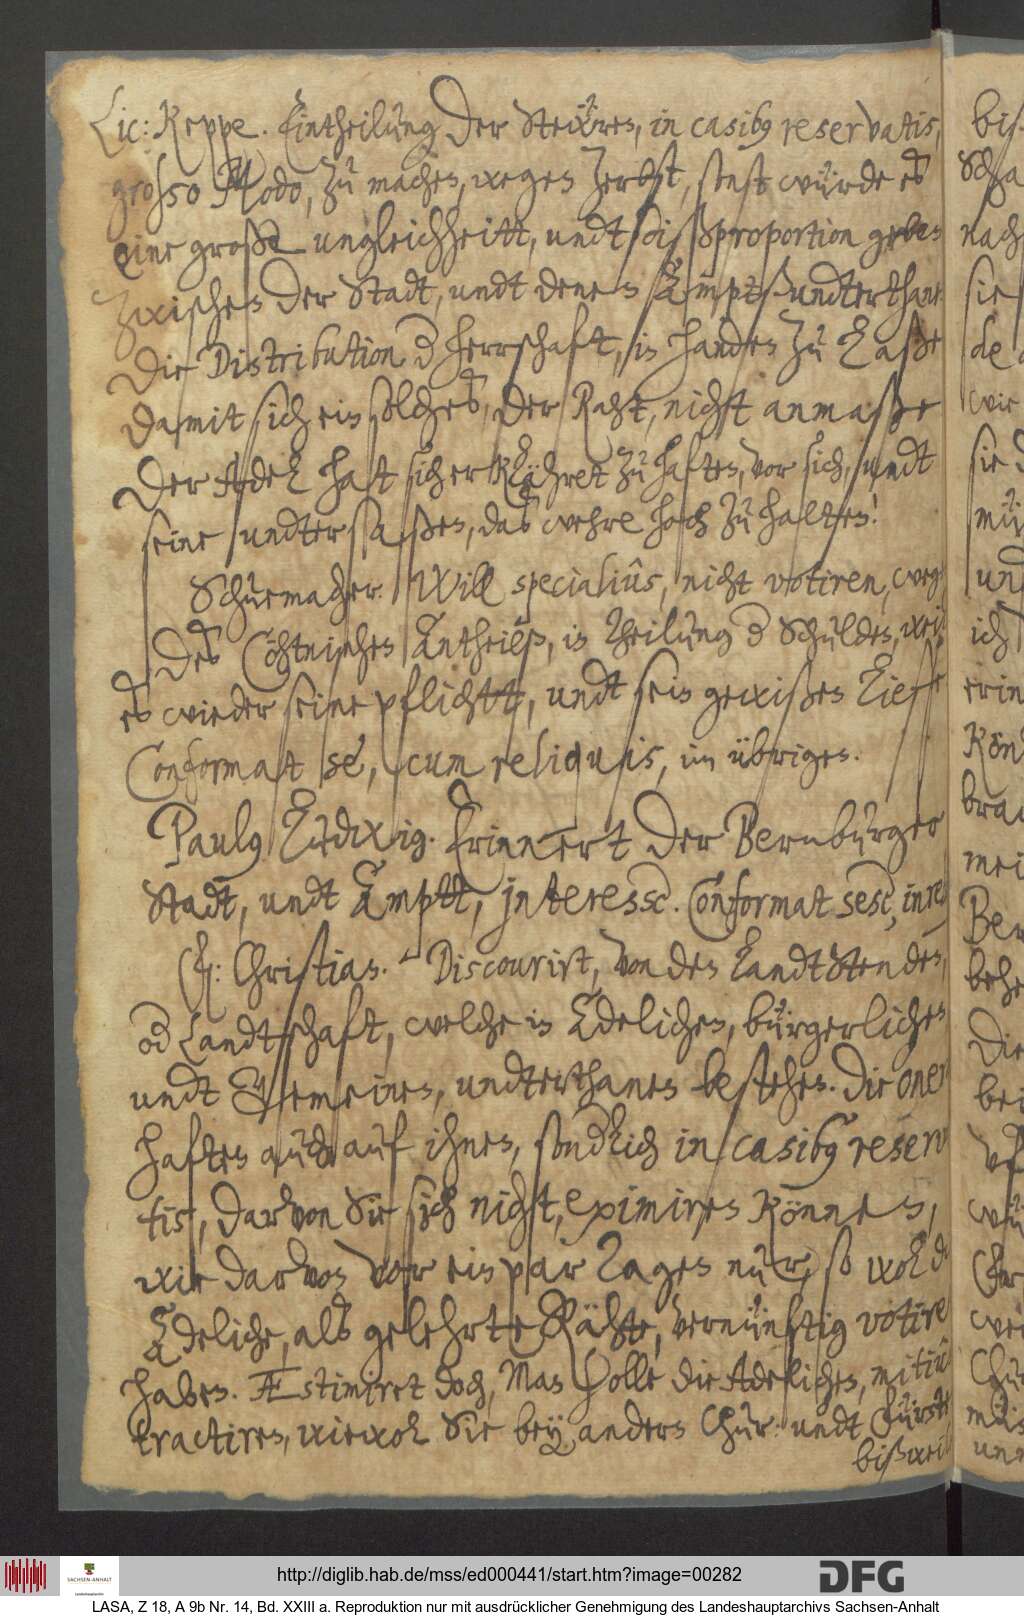 Lic: Keppe. Eintheilung der Steẅren, in casibg reservatis,
grosso Modo, zu machen, wegen Zerbst, sonst würde es
eine große ungleichheitt, undt disßproportion geben
Zwischen der Stadt, undt denen Ämptsundterthanen
Die Distribution d herrschafft, in handen zu Laßen
damit sich ein solches, der Raht, nicht anmaße
Der Adel hatt sich erklähret zu hafften, vor sich, undt
seine undtersaßen, das wehre hoch zu halten!
Schuemacher. Will specialius, nicht votiren, weg
des Cöhtnischen Antheilß, in theilung d Schulden, weil
es wieder seine pflichtt, undt sein gewißen Lieffe
Conformat se, cum reliquis, im übrigen.
Paulg Ludwig. Erinnert der Bernburger
Stadt, undt Ämptt, interesse. Conformat sese, in rel
Christian. Discourirt, von den Landtständen,
od Landtschafft, welche in Adelichen, bürgerlichen
undt Gemeinen, undterthanen bestehen. Die oner
hafften auch auf ihnen, sondlich in casibg reserv
tis, darvon Sie sich nicht, eximiren können,
wie darvon vor ein par Tagen nur, so wol die
Adeliche, als gelehrte Rähte, vernünftig votire
haben. Æstimiret doch, Man solle die Adelichen, mitiu
tractiren, wiewol Sie bey andern Chur: undt Fürste
bißweil
bis
Scha
nach
sie
de
wie
sie
mü
und
ich
erin
Kön
brau
mei
Ber
behe
Die
bei
wü
une
http://diglib.hab.de/mss/ed000441/start.htm?image=00282
SACHSEN-ANHALT
DFG
LASA, Z 18, A 9b Nr. 14, Bd. XXIII a. Reproduktion nur mit ausdrücklicher Genehmigung des Landeshauptarchivs Sachsen-Anhalt